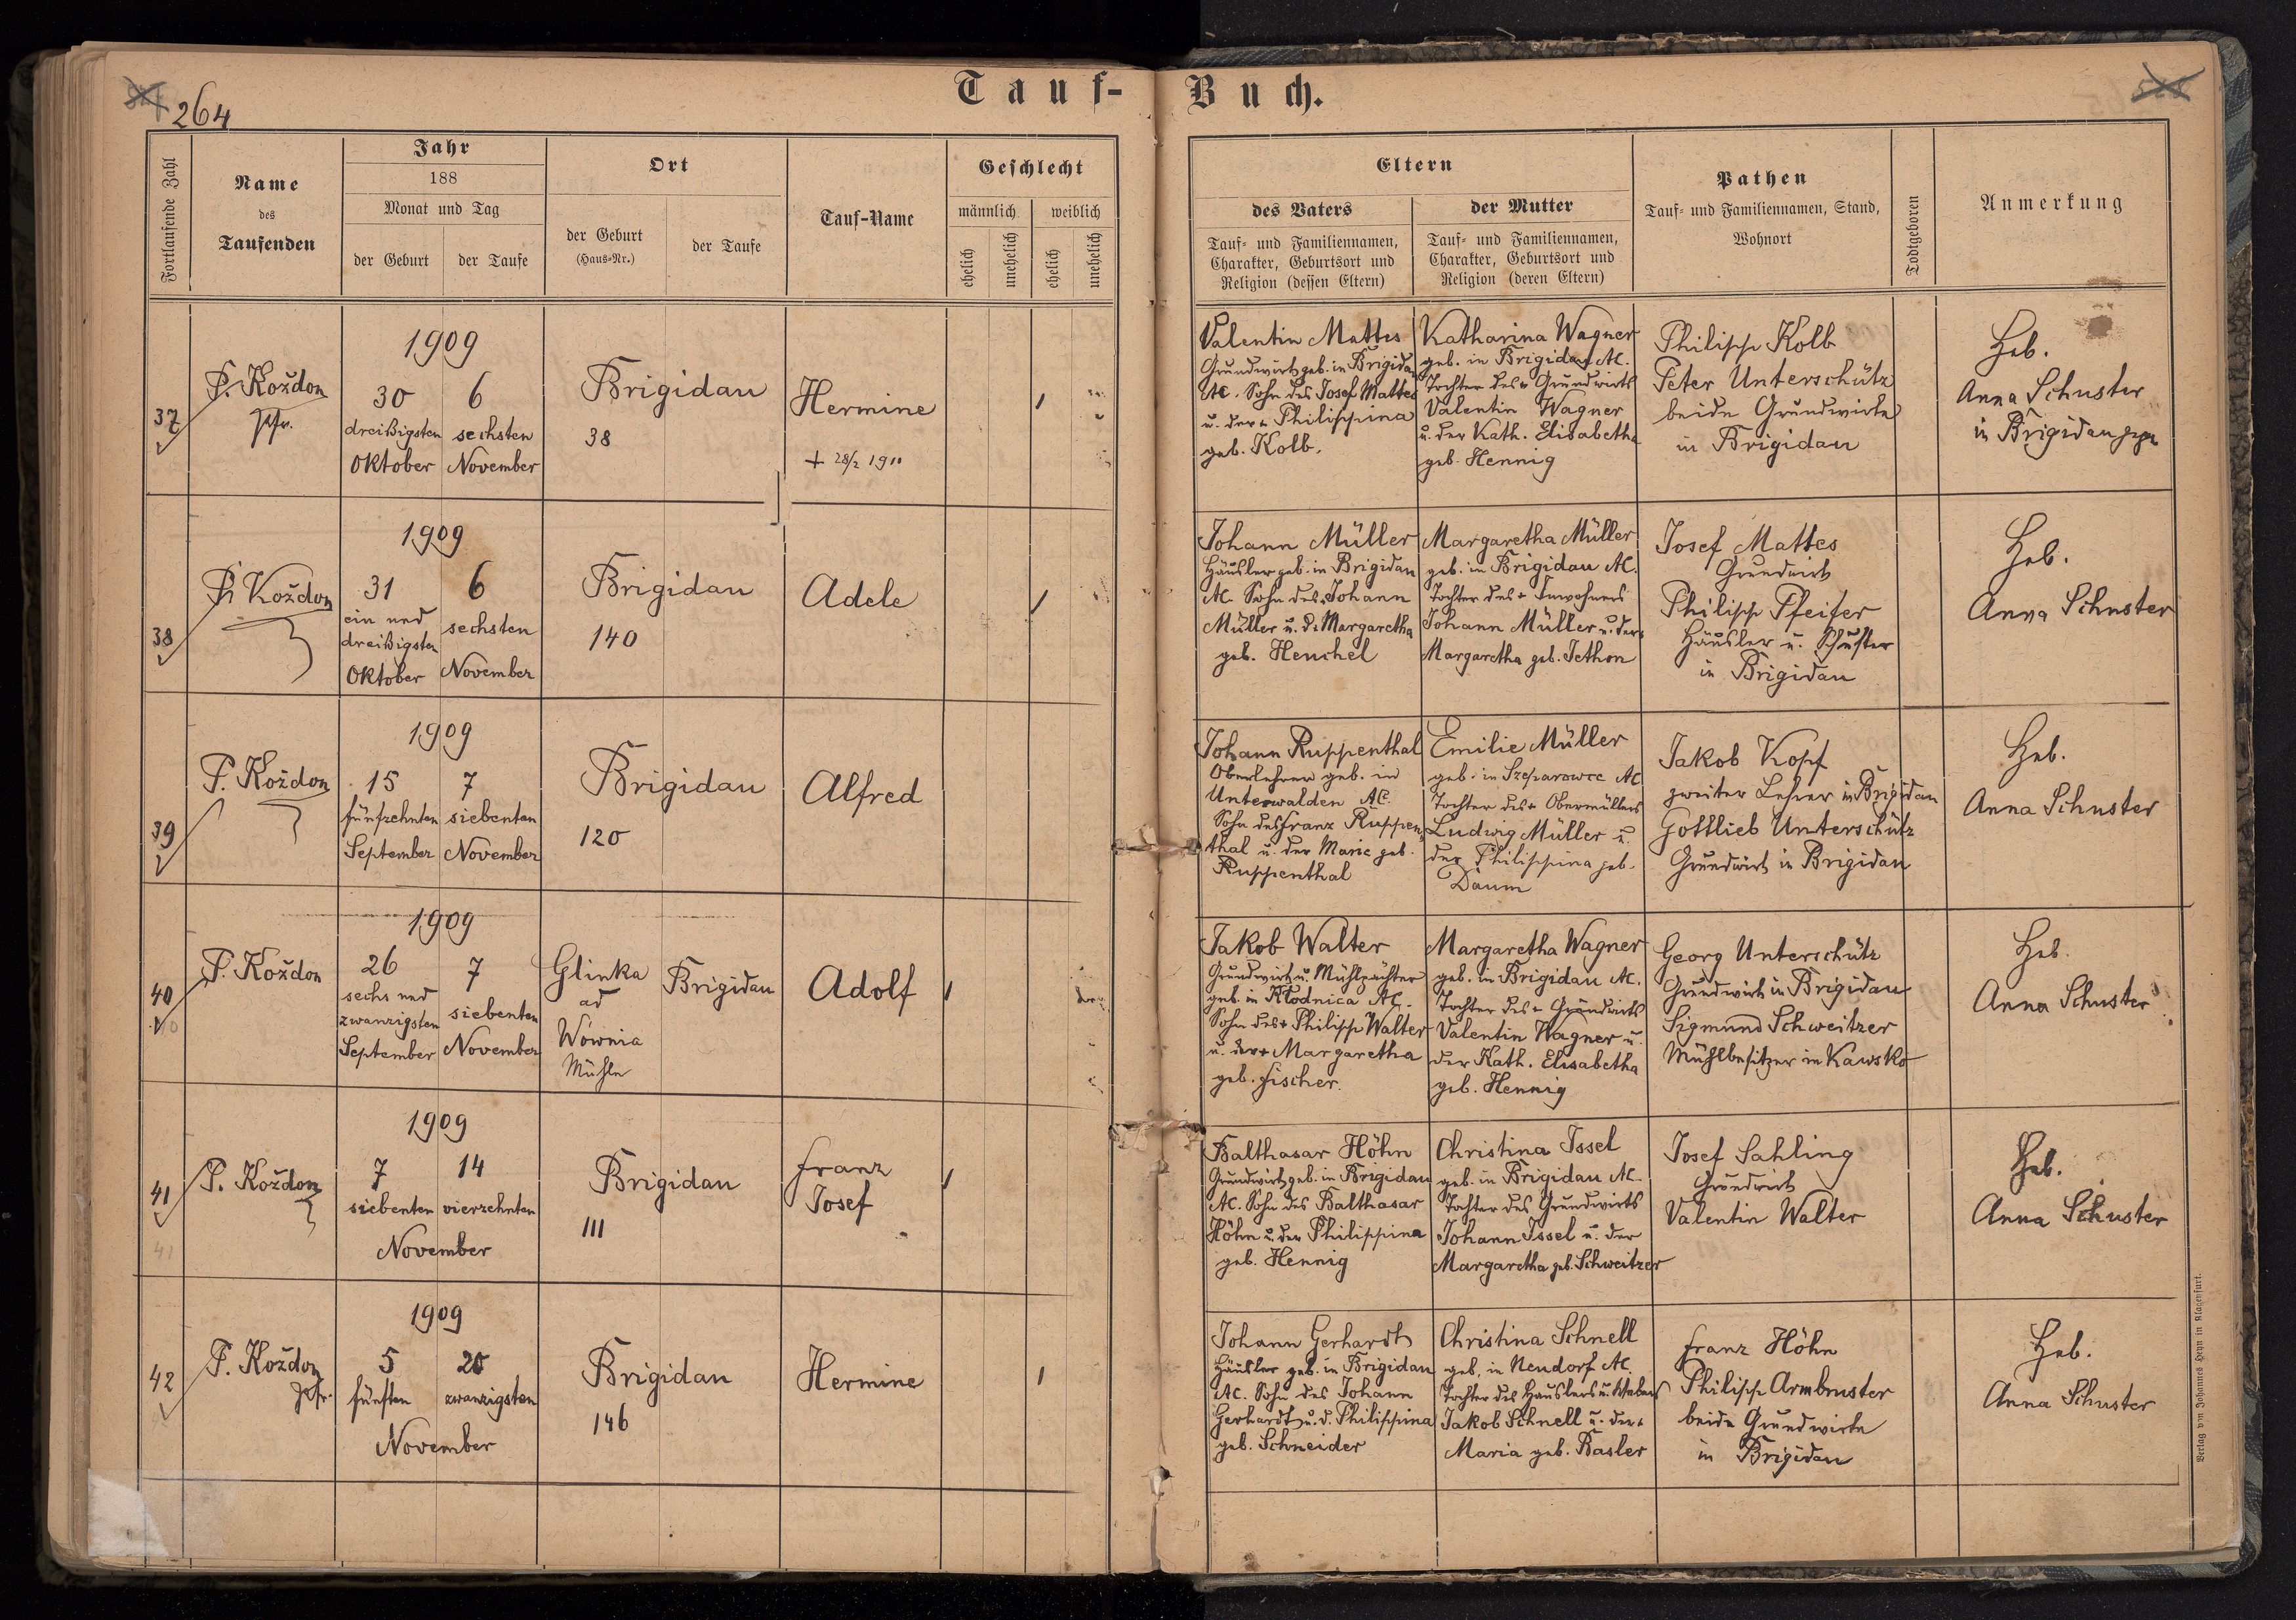 264
Tauf-Buch.
Fortlaufende Zahl
Name
des
Taufenden
Jahr
188
Monat und Tag
der Geburt
der Taufe
Ort
der Geburt
(Haus-Nr.)
der Taufe
Tauf-Name
Geschlecht
männlich
weiblich
ehelich
unehelich
ehelich
unehelich
Eltern
des Vaters
Tauf- und Familiennamen,
Charakter, Geburtsort und
Religion (dessen Eltern)
der Mutter
Tauf- und Familiennamen,
Charakter, Geburtsort und
Religion (deren Eltern)
Pathen
Tauf- und Familiennamen, Stand,
Wohnort
Todtgeboren
Anmerkung
37
P. Koždon
Pfr.
1909
30
dreißigsten
Oktober
6
sechsten
November
Brigidau
38
Hermine
+ 28/2 1911
Valentin Mattes
Grundwirt geb. in Brigidau
AC. Sohn des Josef Mattes
u. der + Philippina
geb. Kolb.
Katharina Wagner
geb. in Brigidau AC.
Tochter des + Grundwirts
Valentin Wagner
u. der Kath. Elisabetha
geb. Hennig
Philipp Kolb
Peter Unterschütz
beide Grundwirte
in Brigidau
Heb.
Anna Schuster
in Brigidau gepr
38
P. Koždon
1909
31
ein und
dreißigsten
Oktober
6
sechsten
November
Brigidau
140
Adele
Johann Müller
Häusler geb. in Brigidau
AC. Sohn des + Johann
Müller u. d. Margaretha
geb. Henchel
Margaretha Müller
geb. in Brigidau AC.
Tochter des + Inwohners
Johann Müller u. der +
Margaretha geb. Jethon
Josef Mattes
Grundwirt
Philipp Pfeifer
Häusler u. Schuster
in Brigidau
Heb.
Anna Schuster
39
P. Koždon
1909
15
fünfzehnten
September
7
siebenten
November
Brigidau
120
Alfred
Johann Ruppenthal
Oberlehrer geb. in
Unterwalden AC.
Sohn des Franz Ruppen-
thal u. der Marie geb.
Ruppenthal
Emilie Müller
geb. in Szeparowce AC
Tochter des + Obermüllers
Ludwig Müller u.
der Philippina geb.
Daum
Jakob Kopf
zweiter Lehrer in Brigidau
Gottlieb Unterschütz
Grundwirt in Brigidau
Heb.
Anna Schuster
40
P. Koždon
1909
26
sechs und
zwanzigsten
September
7
siebenten
November
Glinka
ad
Wównia
Mühle
Brigidau
Adolf
Jakob Walter
Grundwirt u. Mühlpächter
geb. in Kłodnica AC.
Sohn des + Philipp Walter
u. der + Margaretha
geb. Fischer.
Margaretha Wagner
geb. in Brigidau AC.
Tochter des + Grundwirts
Valentin Wagner u.
der Kath. Elisabetha
geb. Hennig
Georg Unterschütz
Grundwirt in Brigidau
Sigmund Schweitzer
Mühlbesitzer in Kawsko
Heb.
Anna Schuster
41
P. Koždon
1909
7
siebenten
14
vierzehnten
November
Brigidau
111
Franz
Josef
Balthasar Höhn
Grundwirt geb. in Brigidau
AC. Sohn des Balthasar
Höhn u. der Philippina
geb. Hennig
Christina Issel
geb. in Brigidau AC.
Tochter des Grundwirts
Johann Issel u. der
Margaretha geb. Schweitzer
Josef Sahling
Grundwirt
Valentin Walter
Heb.
Anna Schuster
41
42
P. Koždon
Pfr.
1909
5
fünften
20
zwanzigsten
November
Brigidau
146
Hermine
Johann Gerhardt
Häusler geb. in Brigidau
AC. Sohn des Johann
Gerhardt u. d. Philippina
geb. Schneider
Christina Schnell
geb. in Neudorf AC.
Tochter des Häuslers u. Webers
Jakob Schnell u. der +
Maria geb. Basler
Franz Höhn
Philipp Armbruster
beide Grundwirte
in Brigidau
Heb.
Anna Schuster
Verlag von Johannes Heyn in Klagenfurt.